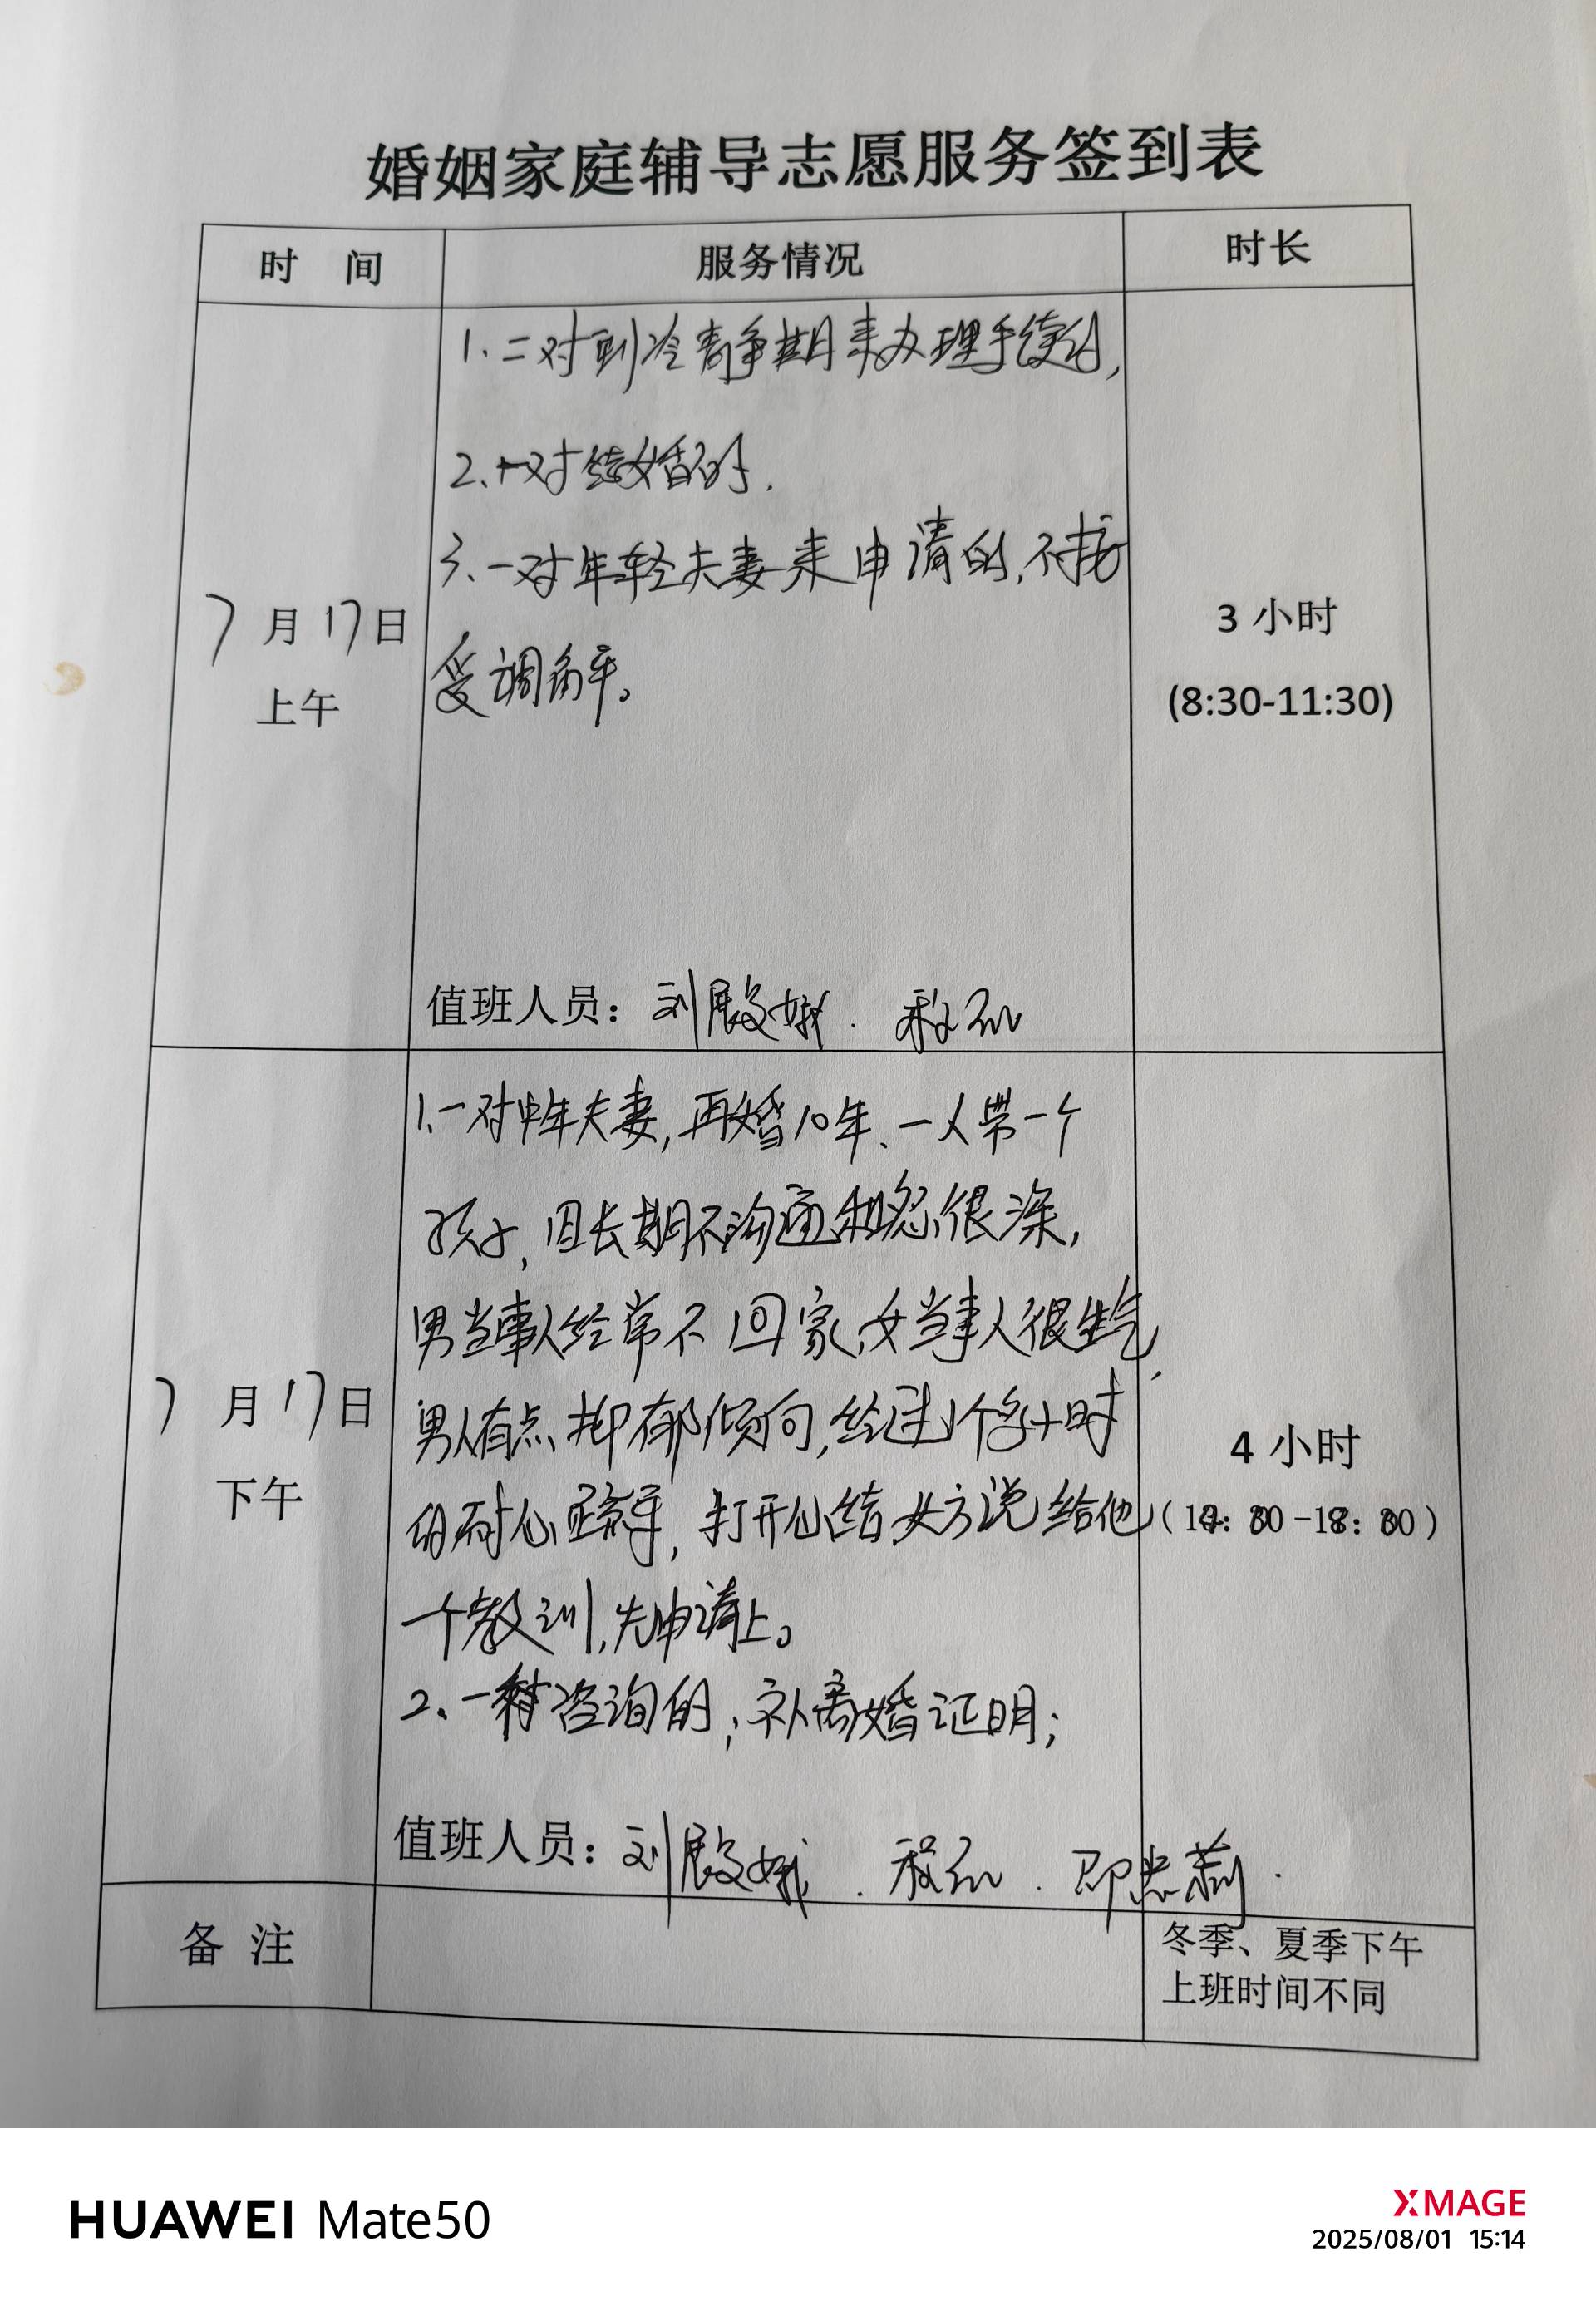 婚姻家庭辅导志愿服务签到表
时 间
服务情况
时长
1.二对到冷静期来办理手续的,
2.一对结婚的.
3.一对年轻夫妻来申请的,不接
受调解。
7月17日
上午
3 小时
(8:30-11:30)
值班人员：刘殿娥.
1.一对中年夫妻,再婚10年、一人带一个
孩子,因长期不沟通积怨很深,
男当事人经常不回家,女当事人很生气,
男人有点抑郁倾向,经过1个多小时
的耐心疏导,打开心结,女方说给他
一个教训,先申请上。
2、一对咨询的;补离婚证明;
7月17日
下午
4 小时
值班人员：刘殿娥.
备 注
冬季、夏季下午
上班时间不同
HUAWEI Mate50
XMAGE
2025/08/01 15:14